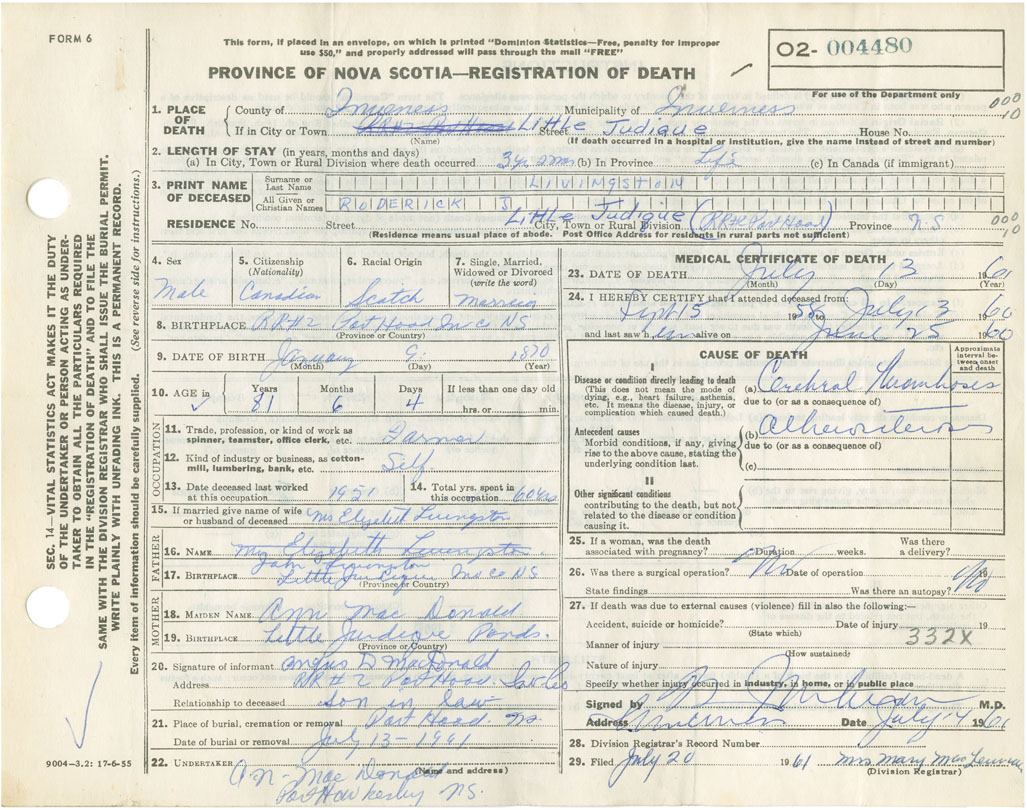 FORM 6
This form, if placed in an envelope, on which is printed "Dominion Statistics—Free, penalty for improper
use $50," and properly addressed will pass through the mail "FREE"
PROVINCE OF NOVA SCOTIA—REGISTRATION OF DEATH
O2- 004480
For use of the Department only
000
10
1. PLACE OF DEATH
County of Inverness Municipality of Inverness
If in City or Town RR#2 Port Hood Little Judique Street House No.
(Name) (If death occurred in a hospital or institution, give the name instead of street and number)
2. LENGTH OF STAY (in years, months and days)
(a) In City, Town or Rural Division where death occurred 3 yrs (b) In Province Life (c) In Canada (if immigrant)
3. PRINT NAME OF DECEASED
Surname or Last Name LIVINGSTON
All Given or Christian Names RODERICK J
RESIDENCE No. Street Little Judique City, Town or Rural Division (RR#2 Port Hood) Province N S
000
10
(Residence means usual place of abode. Post Office Address for residents in rural parts not sufficient)
4. Sex
Male
5. Citizenship
(Nationality)
Canadian
6. Racial Origin
Scotch
7. Single, Married,
Widowed or Divorced
(write the word)
Married
8. BIRTHPLACE RR#2 Port Hood Inv. Co NS
(Province or Country)
9. DATE OF BIRTH January 9 1870
(Month) (Day) (Year)
10. AGE in
Years Months Days If less than one day old
81 6 4 hrs. or min.
OCCUPATION
11. Trade, profession, or kind of work as
spinner, teamster, office clerk, etc. Farmer
12. Kind of industry or business, as cotton-
mill, lumbering, bank, etc. Self
13. Date deceased last worked
at this occupation 1951
14. Total yrs. spent in
this occupation 60 yrs
15. If married give name of wife
or husband of deceased Mrs Elizebeth Livingston
FATHER
16. NAME Mrs Elizabeth Livingston
John Livingston
17. BIRTHPLACE Little Judique Inv Co NS
(Province or Country)
MOTHER
18. MAIDEN NAME Ann Mac Donald
19. BIRTHPLACE Little Jurdique Ponds.
(Province or Country)
20. Signature of informant Angus D MacDonald
Address RR#2 Port Hood.
Relationship to deceased Son in law
21. Place of burial, cremation or removal Port Hood NS.
Date of burial or removal July 13-1961
22. UNDERTAKER A N- Mac Donald
(Name and address)
Port Hawkesbry NS.
MEDICAL CERTIFICATE OF DEATH
23. DATE OF DEATH July 13 1961
(Month) (Day) (Year)
24. I HEREBY CERTIFY that I attended deceased from:
Sept 15 1958 to July 13 1960
and last saw him alive on June 25 1960
CAUSE OF DEATH
Approximate
interval be-
tween onset
and death
I
Disease or condition directly leading to death
(This does not mean the mode of
dying, e.g., heart failure, asthenia,
etc. It means the disease, injury, or
complication which caused death.)
(a) Cerebral Thrombosis
due to (or as a consequence of)
Antecedent causes
Morbid conditions, if any, giving
rise to the above cause, stating the
underlying condition last.
(b)
due to (or as a consequence of)
(c)
II
Other significant conditions
contributing to the death, but not
related to the disease or condition
causing it.
25. If a woman, was the death
associated with pregnancy? Duration weeks. Was there
a delivery?
26. Was there a surgical operation? No Date of operation 19
State findings Was there an autopsy? No
27. If death was due to external causes (violence) fill in also the following:—
Accident, suicide or homicide? Date of injury 19
(State which)
332X
Manner of injury
(How sustained)
Nature of injury
Specify whether injury occurred in industry, in home, or in public place
Signed by M.D.
Address Inverness Date July 14 1961
28. Division Registrar's Record Number
29. Filed July 20 1961 Mrs Mary Mac
(Division Registrar)
SEC. 14—VITAL STATISTICS ACT MAKES IT THE DUTY
OF THE UNDERTAKER OR PERSON ACTING AS UNDER-
TAKER TO OBTAIN ALL THE PARTICULARS REQUIRED
IN THE "REGISTRATION OF DEATH" AND TO FILE THE
SAME WITH THE DIVISION REGISTRAR WHO SHALL ISSUE THE BURIAL PERMIT.
WRITE PLAINLY WITH UNFADING INK. THIS IS A PERMANENT RECORD.
Every item of information should be carefully supplied. (See reverse side for instructions.)
9004—3.2: 17-6-55